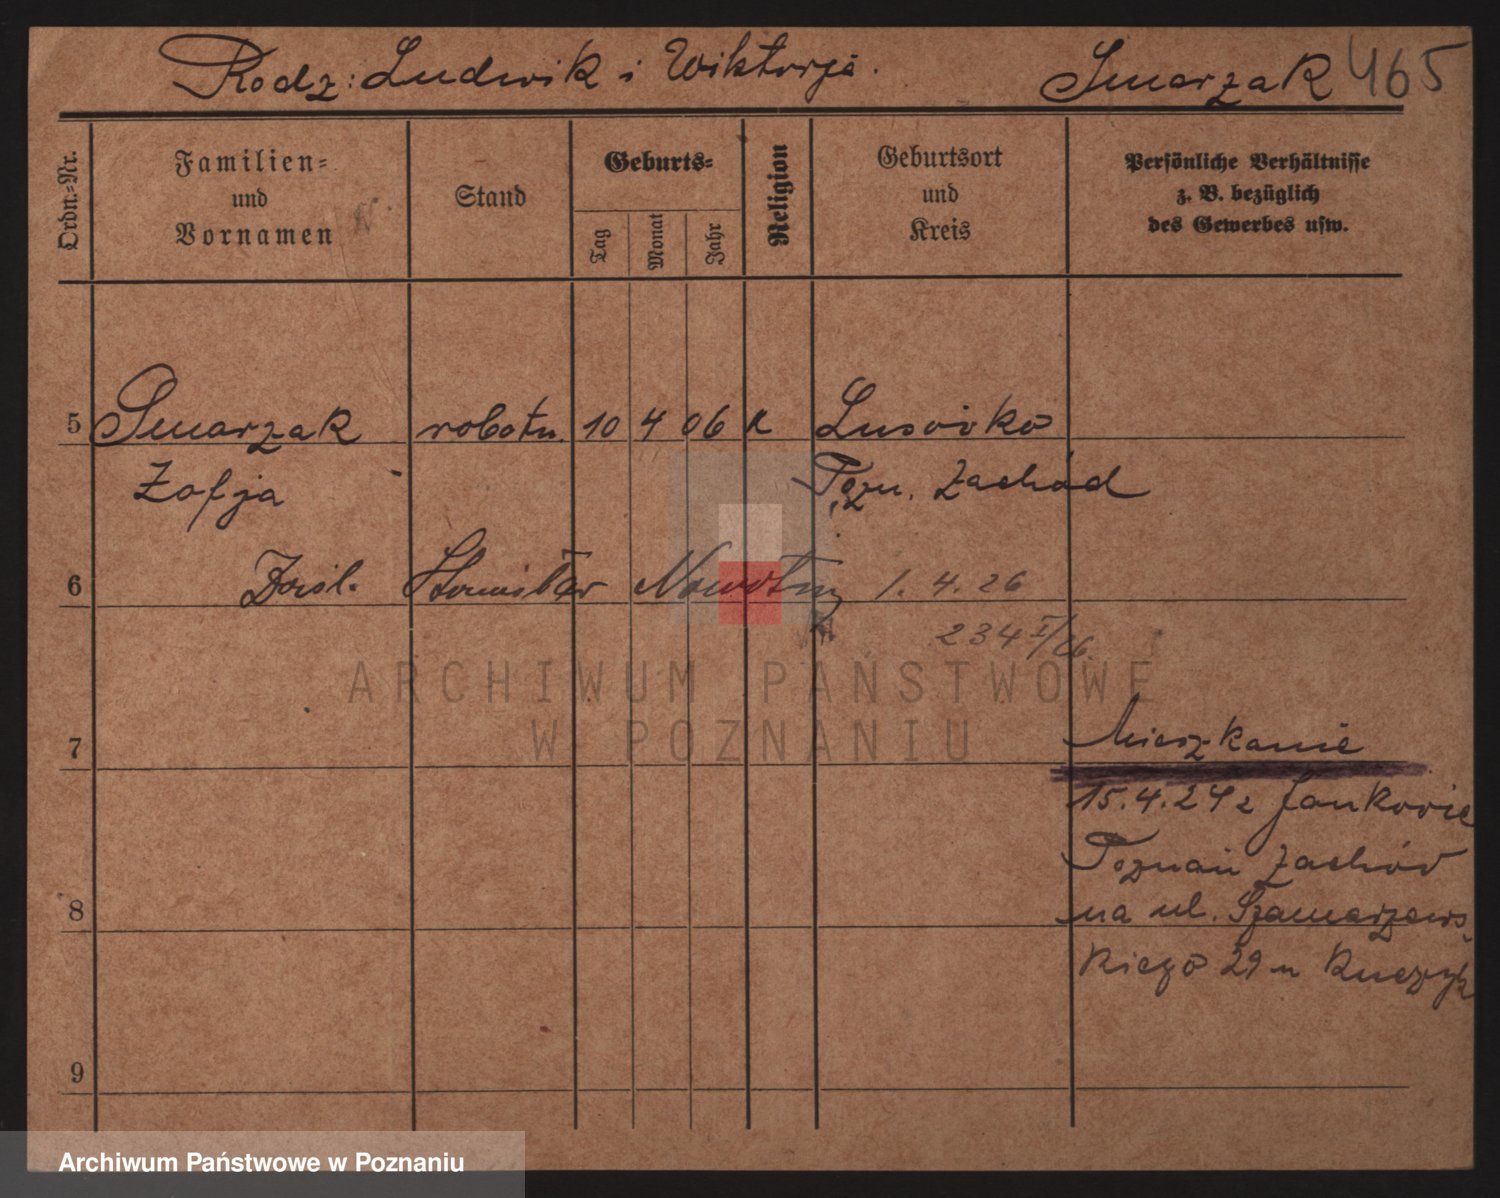 Rodz: Ludwik i Wiktorja. Smarzak 465
Ordn.=Nr.
Familien=
und
Vornamen
Stand
Geburts=
Tag
Monat
Jahr
Religion
Geburtsort
und
Kreis
Persönliche Verhältnisse
z. B. bezüglich
des Gewerbes usw.
5 Smarzak robotn. 10 4 06 k Lusowko
Zofja Pozn. Zachód
6 Stanisław Nowotny 1. 4. 26
234 I/26
7 Mieszkanie
15.4.24 z Jankowic
Poznań Zachód
8 na ul. Szamarzews
kiego 29 u
9
ARCHIWUM PAŃSTWOWE
W POZNANIU
Archiwum Państwowe w Poznaniu